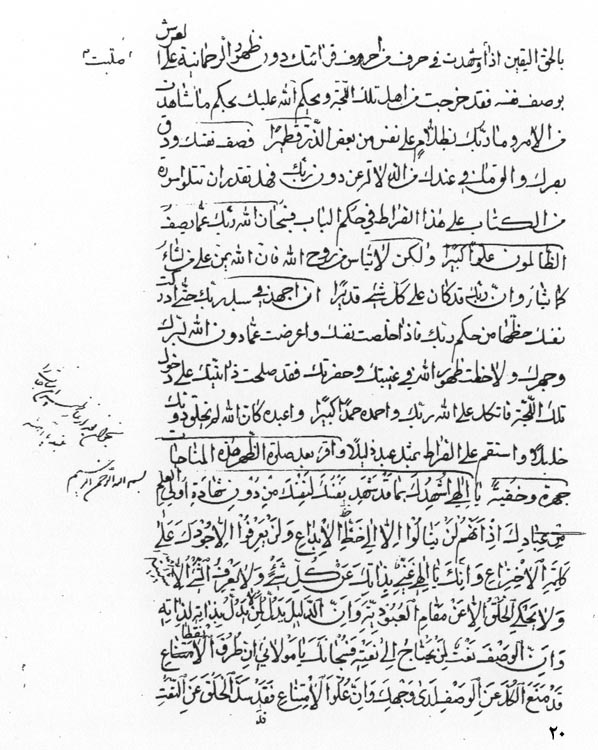 بالحق اليقين اذا وشهدت في حرف من حروف قرائتك دون ظهور الرحمانية على العرش
بوصف نفسه فقد خرجت من اهل تلك اللجة ويحكم الله عليك بحكم ما شاهدت
من الامر وما ربك بظلام على نفس من بعض الذر قطميرا فصف نفسك ودق
بصرك والق ما في عندك من الله لا من دون ربك فهل تقدر ان تتلو سورة
من الكتاب على هذا الصراط في حكم الباب فسبحان الله ربك عما يصف
الظالمون علوا كبيرا ولكن لا تياس من روح الله فان الله يمن على من يشاء
كما يشاء وان ربك قد كان على كل شئ قديرا ان اجهد في سبيل ربك حتى ادركت
نفسك حظها من حكم ربك فاذا اخلصت نفسك واعرضت عما دون الله لسرك
وجهرك ولاحظت ظهور الله في غيبتك وحضرتك فقد صلحت ذاتيتك على دخول
تلك اللجة فاتكل على الله ربك واحمده حمدا كبيرا واعبده كان الله لم يخلق دونك
خليلا واستقم على الصراط بمثل عبد ذليلا واقرء بعد صلوة الظهر هذه المناجات
جهرة وخفية يا الهي اشهدك بما قد شهد نفسك لنفسك من دون شهادة اولي العلم
من عبادك اذ انهم لن ينالوا الا الى حظ الابداع ولن يعرفوا الا جودك على
كلمة الاختراع وانك يا الهي غني بذاتك عن كل شئ ولا يعرف
ولا يحكي الخلق الا عن مقام العبودية وان الدليل يدل لمن لا يدل بذاته لذاته
وان الوصف نعت لمن يحتاج الى نعته فسبحانك يا مولاي ان طرق الامتناع
قد منع الكل عن الوصف لدى وجهك وان علو الامتناع قد سد الخلق عن النعت
بسم الله الرحمن الرحيم
٢٠